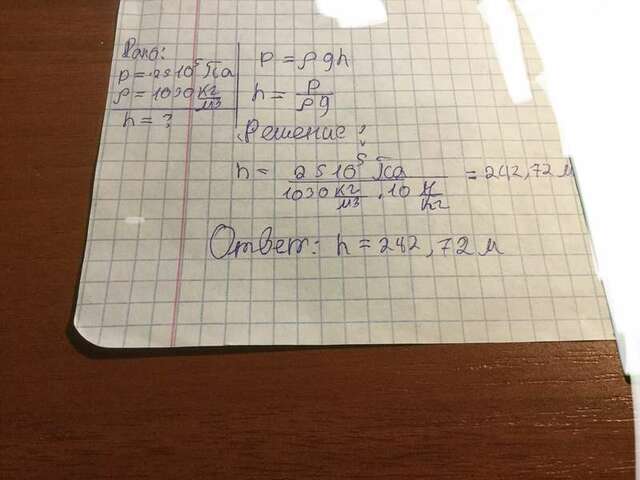 Дано:
p = 25 10⁵ Па
ρ = 1030 кг/м3
h = ?
p = ρgh
h = p/ρg
Решение:
h = 25 10⁵ Па / 1030 кг/м3 · 10 Н/кг = 242,72 м
Ответ: h = 242,72 м